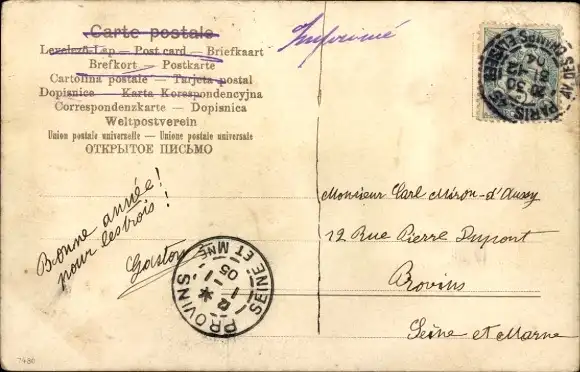 Carte postale
Levelező-Lap — Post card — Briefkaart
Brefkort — Postkarte
Cartolina postale — Tarjeta postal
Dopisnice — Karta Korespondencyjna
Correspondenzkarte — Dopisnica
Weltpostverein
Union postale universelle — Unione postale universale
ОТКРЫТОЕ ПИСЬМО
Imprimé
Bonne année!
pour les trois!
Gaston
PROVINS
SEINE ET MNE
12
1 - 1
05
PARIS
AV. DES CHAMPS ELYSEES
20 30
Monsieur Carl Miron-d'Aussy
12 Rue Pierre Dupont
Provins
Seine et Marne
7486